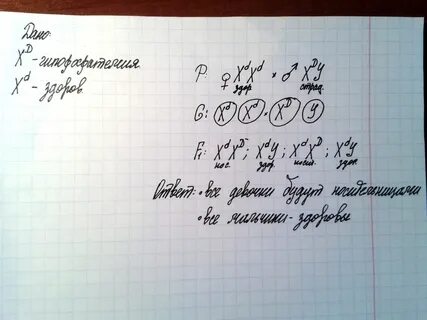 Дано:
X^D - гипофосфатемия
X^d - здоров.
P: ♀ X^d X^d × ♂ X^D Y
здор. страд.
G: X^d X^d X^D Y
F₁: X^d X^D; X^d Y; X^d X^D; X^d Y
нос. здор. носит. здор.
Ответ: • все девочки будут носительницами
• все мальчики - здоровы